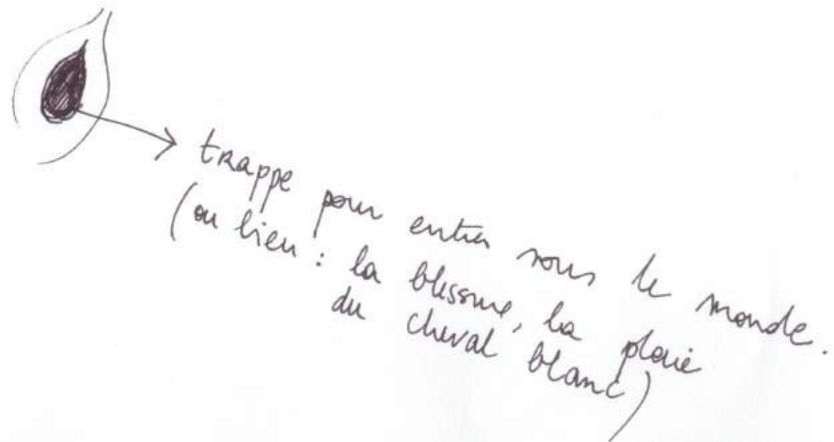 trappe pour entrer sous le monde.
(ou bien : la blessure, la plaie
du cheval blanc)